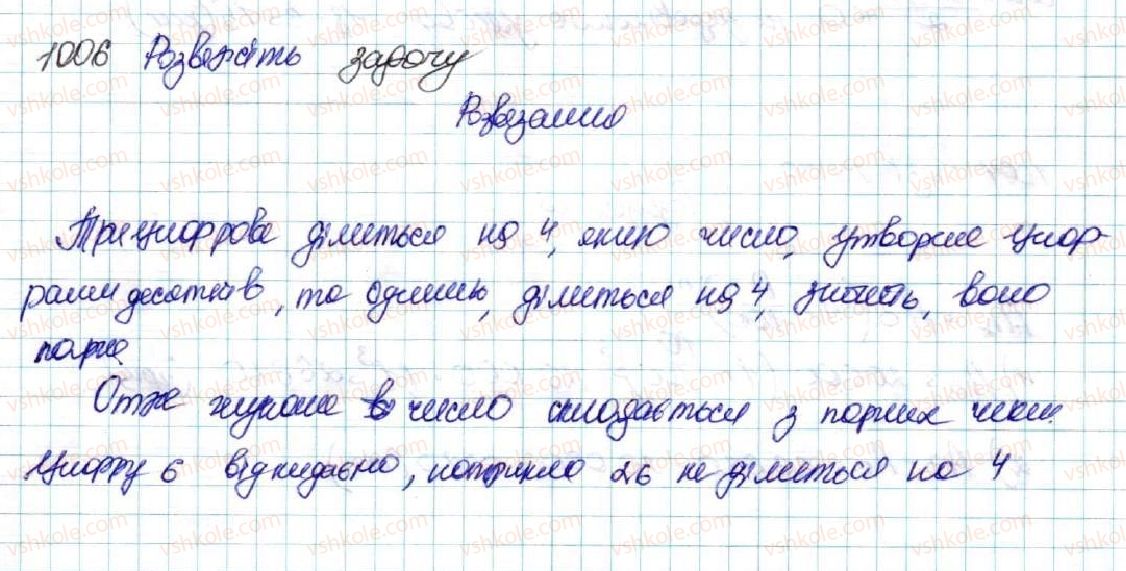 1006 Розвяжіть задачу
Розвязання
Трицифрове ділиться на 4, якщо число, утворене циф-
рами десятків, та одиниць, ділиться на 4, значить, воно
парне.
Отже шукане число складається з парних чисел.
Цифру 6 відкидаємо, наприклад 26 не ділиться на 4